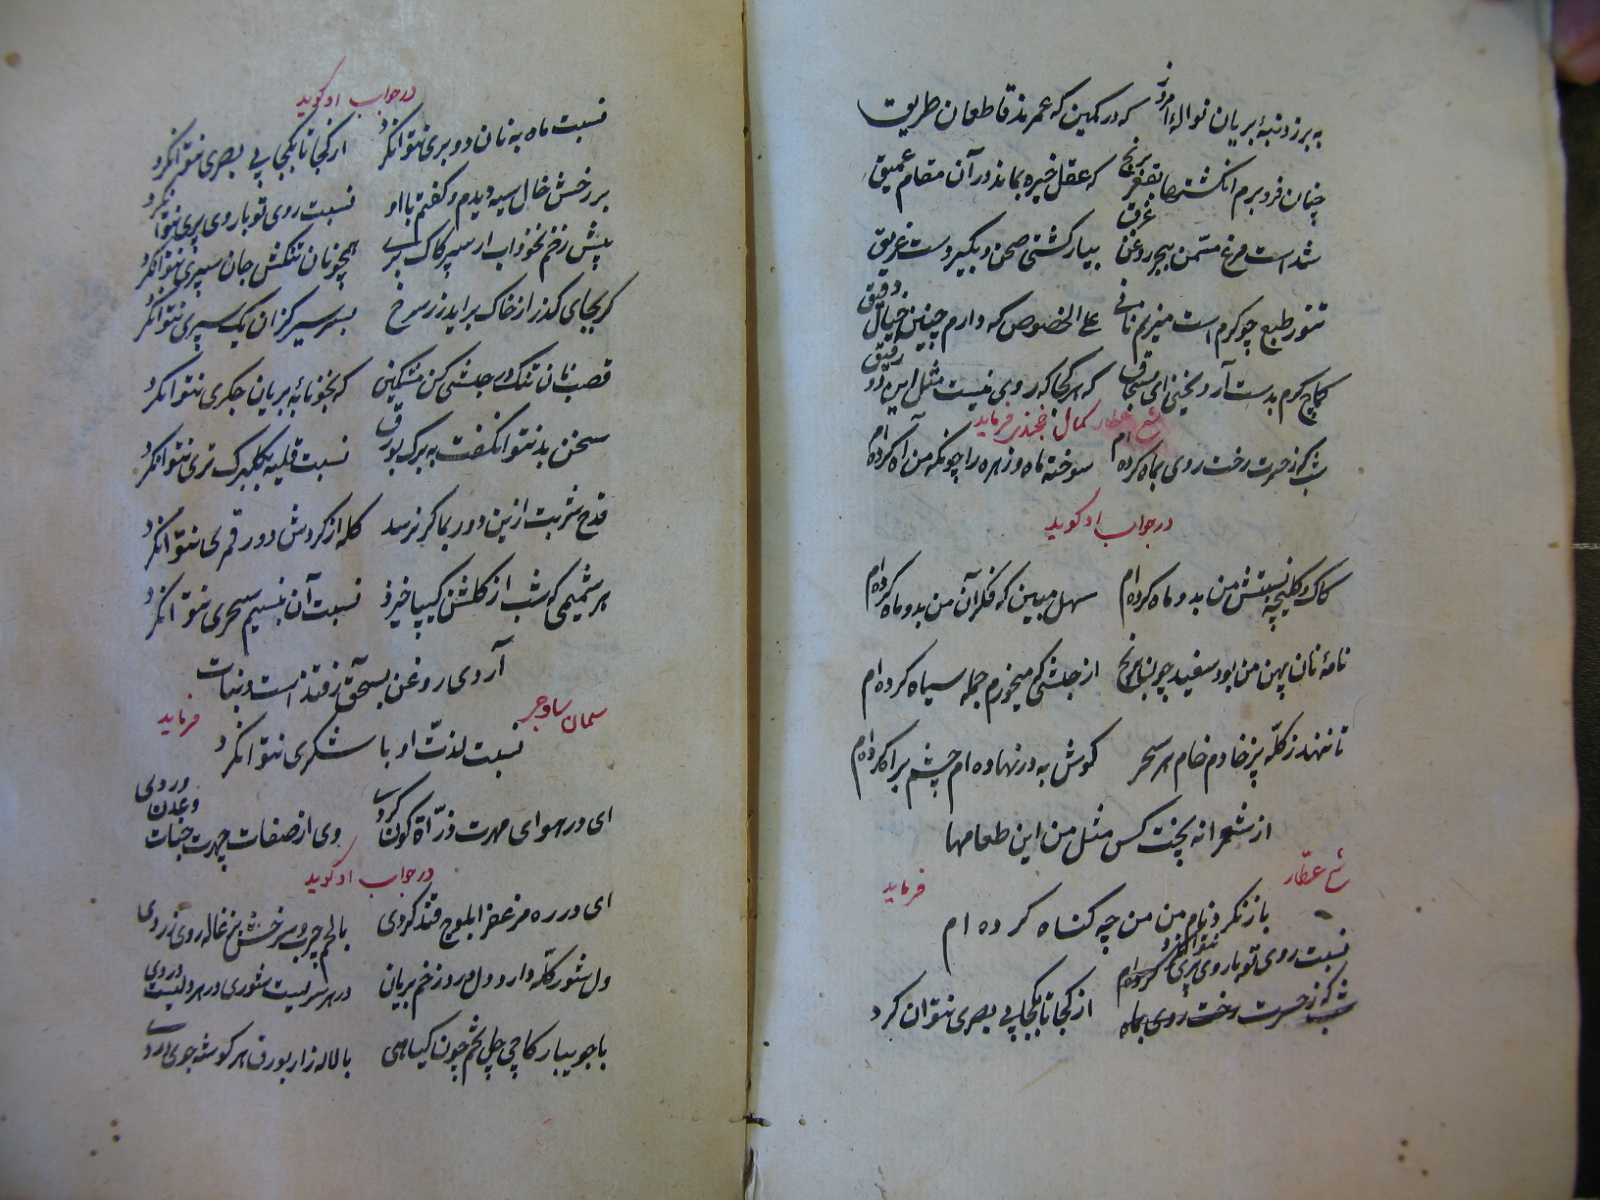 به بر ز دنبهٔ بریان نوالهٔ امروز که در کمین که عمرند قاطعان طریق
چنان فرو برم انگشتها بقعر برنج که عقل خیره بماند در آن مقام عمیق
شد است مرغ مسمّن ببحر روغن غرق بیار کشتی صحن و بگیر دست غریق
تنور طبع چو کرم است میزنم نانی علی الخصوص که دارم چنین خیال دقیق
کماج کرم بدست آر و یخنی ای بسحاق که هر کجا که روی نیست مثل این دو رفیق
کمال خجندی فرماید
شب که ز حسرت رخت روی بماه کرده ام سوخته ماه و زهره را چونکه من آه کرده ام
در جواب او کوید
کاک و کلیچه نسبتش من بدو ماه کرده ام سهل مبین که فکر آن من بدو ماه کرده ام
نامهٔ نان پهن من بود سفید چو برنج از حبشی که میخورم جمله سیاه کرده ام
تا ننهد ز کلّه پز خادم خام هر سحر کوش به در نهاده ام چشم براه کرده ام
از شعرا نه پخت کس مثل من این طعامها
شیخ عطّار فرماید
باز نکرد نام من من چه کناه کرده ام
نسبت روی تو با روی پری نتوان کرد از کجا تا بکجا بی بصری نتوان کرد
شب که ز حسرت رخت روی بماه کرده ام
در جواب او کوید
نسبت ماه به نان دو بری نتوانکرد از کجا تا بکجا بی بصری نتوانکرد
بر رخش خال سیه دیدم و کفتم با او نسبت روی تو با روی پری نتوانکرد
پیش زخم نخوداب ار سپر کاک بری همچو نان تنکش جان سپری نتوانکرد
کر بجای کذر از خاک براید زر سرخ بسر سیر کزان یک سپری نتوانکرد
قصب نان تنک در حبشی کن مشکین که بخونابهٔ بریان جکری نتوانکرد
سخن بد نتوانکفت به برک بورق نسبت قلیه بکلبرک تری نتوانکرد
قدح شربت ازین دور بما کر نرسد کله از کردش دور قمری نتوانکرد
هر شمیمی که شب از کلشن کیپا خیزد نسبت آن بنسیم سحری نتوانکرد
آروی روغن بسحق ز قند است و نبات
نسبت لذّت او با شکری نتوانکرد
سلمان ساوجی فرماید
ای در هوای مهرت ذرّات کون کردی وی از صفات چهرت جنات عدن وردی
در جواب او کوید
ای در ره مزعفر ابلوج قند کردی با لحم چرب و سرخش بزغاله روی زردی
دل شور کلّه دارد دل درد زخم بریان در هر سریست شوری در هر دلیست دردی
با جویبار کاچی چلپخم چون کیاهی با لاله زار بورق هر کوشه جوی وردی